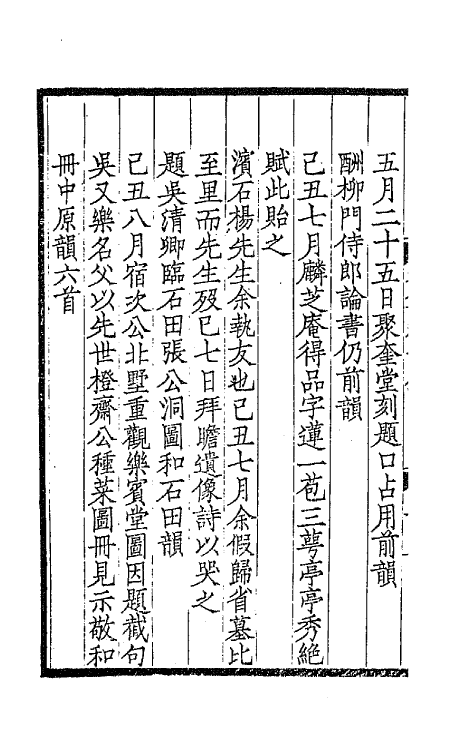 五月二十五日聚奎堂刻題口占用前韻
酬柳門侍郎論書仍前韻
己丑七月麟芝庵得品字蓮一苞三萼亭亭秀絕
賦此貽之
濱石楊先生余執友也己丑七月余假歸省墓比
至里而先生歿已七日拜瞻遺像詩以哭之
題吳清卿臨石田張公洞圖和石田韻
己丑八月宿次公北墅重觀樂賓堂圖因題截句
吳又樂名父以先世橙齋公種菜圖冊見示敬和
冊中原韻六首